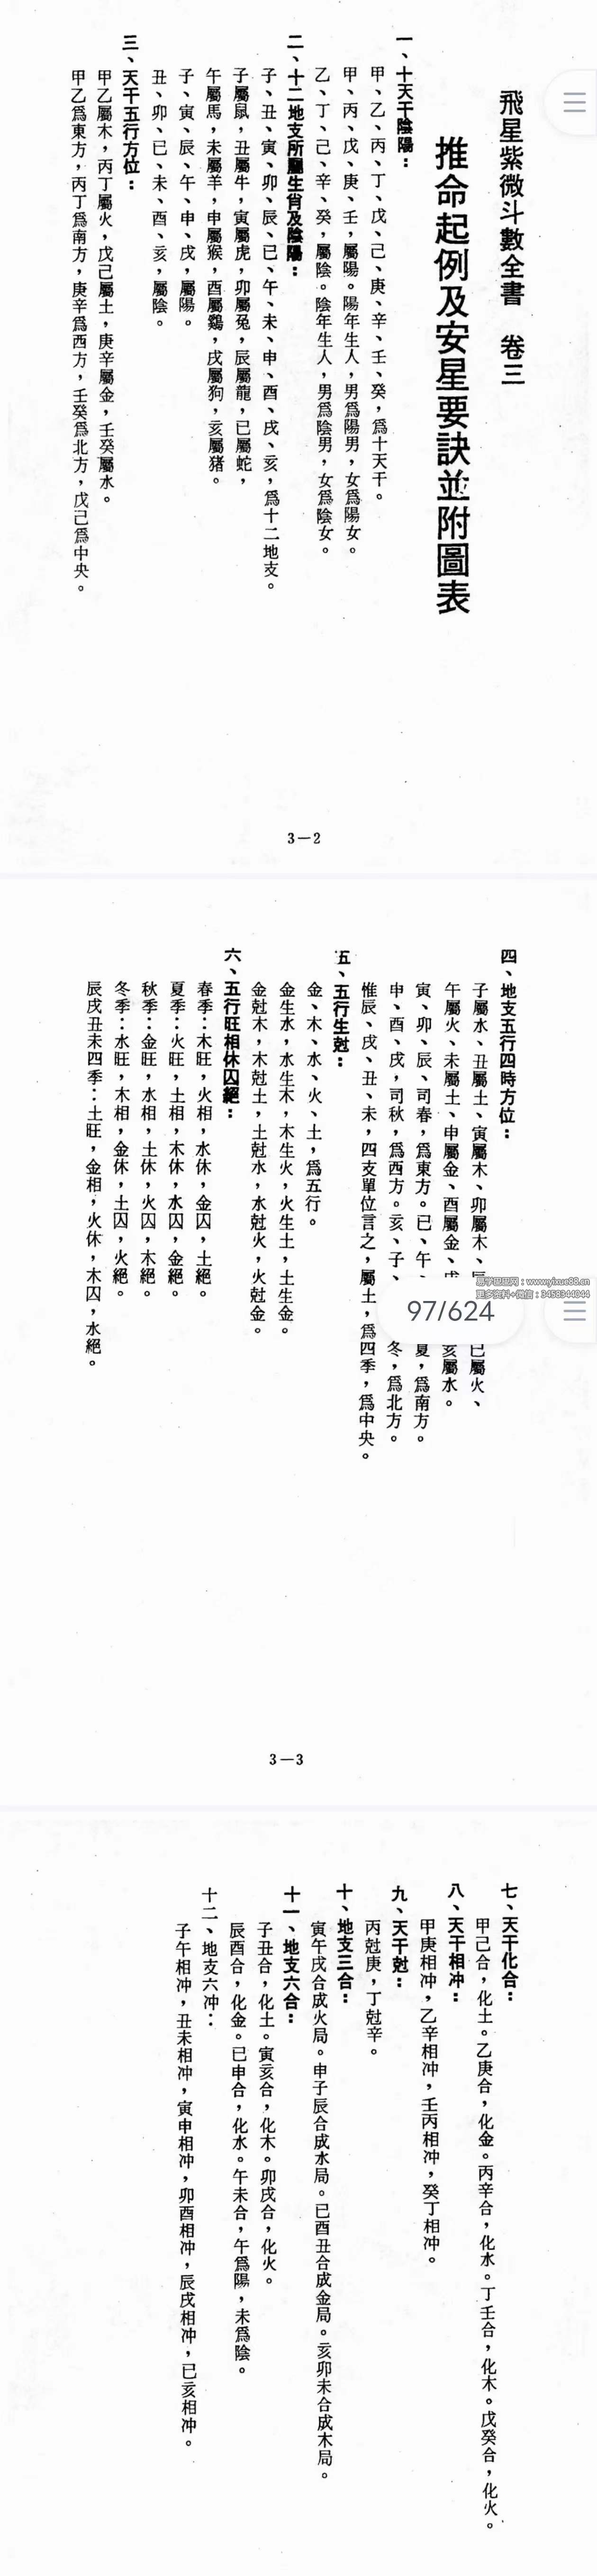 飛星紫微斗數全書　卷三
推命起例及安星要訣並附圖表
一、十天干陰陽：
甲、乙、丙、丁、戊、己、庚、辛、壬、癸，爲十天干。
甲、丙、戊、庚、壬，屬陽。陽年生人，男爲陽男，女爲陽女。
乙、丁、己、辛、癸，屬陰。陰年生人，男爲陰男，女爲陰女。
二、十二地支所屬生肖及陰陽：
子、丑、寅、卯、辰、巳、午、未、申、酉、戌、亥，爲十二地支。
子屬鼠，丑屬牛，寅屬虎，卯屬兔，辰屬龍，巳屬蛇，
午屬馬，未屬羊，申屬猴，酉屬鷄，戌屬狗，亥屬猪。
子、寅、辰、午、申、戌，屬陽。
丑、卯、巳、未、酉、亥，屬陰。
三、天干五行方位：
甲乙屬木，丙丁屬火，戊己屬土，庚辛屬金，壬癸屬水。
甲乙爲東方，丙丁爲南方，庚辛爲西方，壬癸爲北方，戊己爲中央。
3—2
四、地支五行四時方位：
子屬水、丑屬土、寅屬木、卯屬木、巳屬火、
午屬火、未屬土、申屬金、酉屬金、亥屬水。
寅、卯、辰、司春，爲東方。巳、午、夏，爲南方。
申、酉、戌，司秋，爲西方。亥、子、冬，爲北方。
惟辰、戌、丑、未，四支單位言之，屬土，爲四季，爲中央。
五、五行生尅：
金、木、水、火、土，爲五行。
金生水，水生木，木生火，火生土，土生金。
金尅木，木尅土，土尅水，水尅火，火尅金。
六、五行旺相休囚絕：
春季：木旺，火相，水休，金囚，土絕。
夏季：火旺，土相，木休，水囚，金絕。
秋季：金旺，水相，土休，火囚，木絕。
冬季：水旺，木相，金休，土囚，火絕。
辰戌丑未四季：土旺，金相，火休，木囚，水絕。
易学巴巴网：www.yixue88.cn
更多资料+微信：3458344044
97/624
3—3
七、天干化合：
甲己合，化土。乙庚合，化金。丙辛合，化水。丁壬合，化木。戊癸合，化火。
八、天干相冲：
甲庚相冲，乙辛相冲，壬丙相冲，癸丁相冲。
九、天干尅：
丙尅庚，丁尅辛。
十、地支三合：
寅午戌合成火局。申子辰合成水局。巳酉丑合成金局。亥卯未合成木局。
十一、地支六合：
子丑合，化土。寅亥合，化木。卯戌合，化火。
辰酉合，化金。巳申合，化水。午未合，午爲陽，未爲陰。
十二、地支六冲：
子午相冲，丑未相冲，寅申相冲，卯酉相冲，辰戌相冲，巳亥相冲。